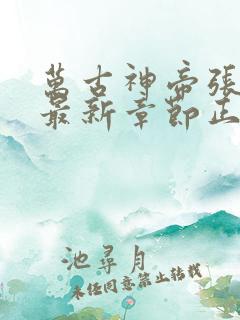 萬古神帝張
最新章節正
池尋月
未經同意禁止轉載